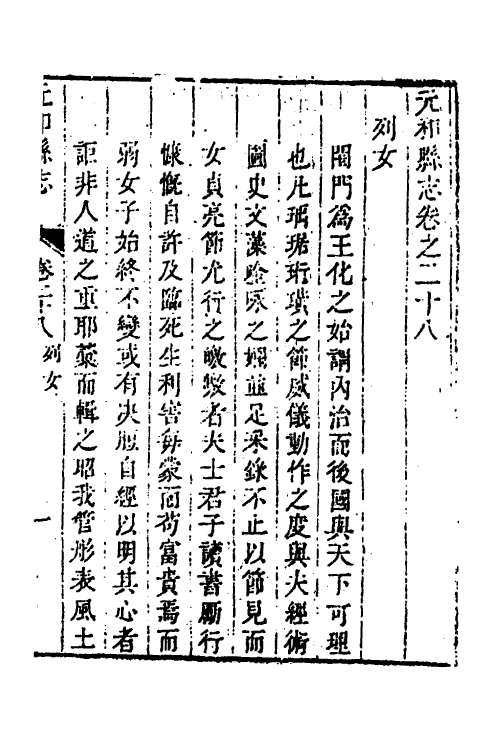 元和縣志卷之二十八
列女
閨門爲王化之始謂內治而後國與天下可理
也凡瑀琚珩璜之節威儀動作之度與夫經術
圖史文藻唫咏之嫺並足采錄不止以節見而
女貞亮節尤行之皦皦者夫士君子讀書勵行
慷慨自許及臨死生利害每蒙面苟富貴焉而
弱女子始終不變或有決脰自經以明其心者
詎非人道之重耶彙而輯之昭我管彤表風土
元和縣志
卷二十八 列女
一